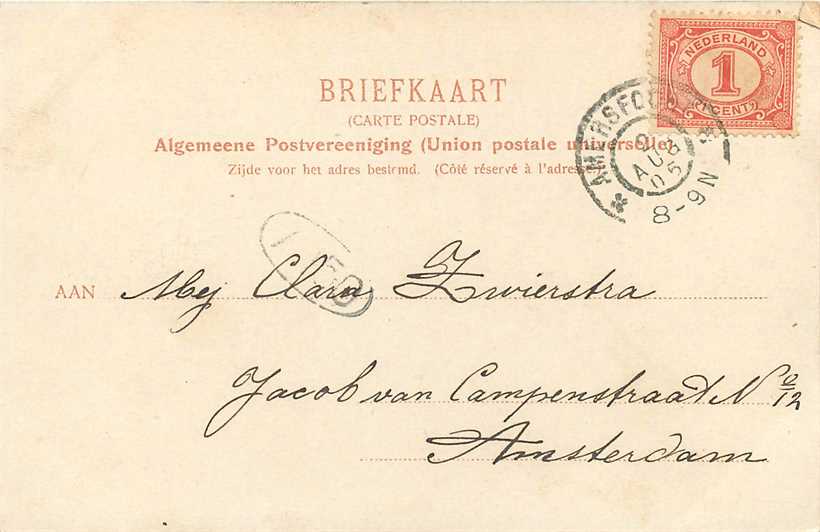 NEDERLAND
1
(1 CENT)
BRIEFKAART
(CARTE POSTALE)
Algemeene Postvereeniging (Union postale universelle)
Zijde voor het adres bestemd. (Côté réservé à l'adresse.)
AMERSFOORT
AUG
05
8-9N
AAN Mej Clara Zwierstra
Jacob van Campenstraat No 12
Amsterdam